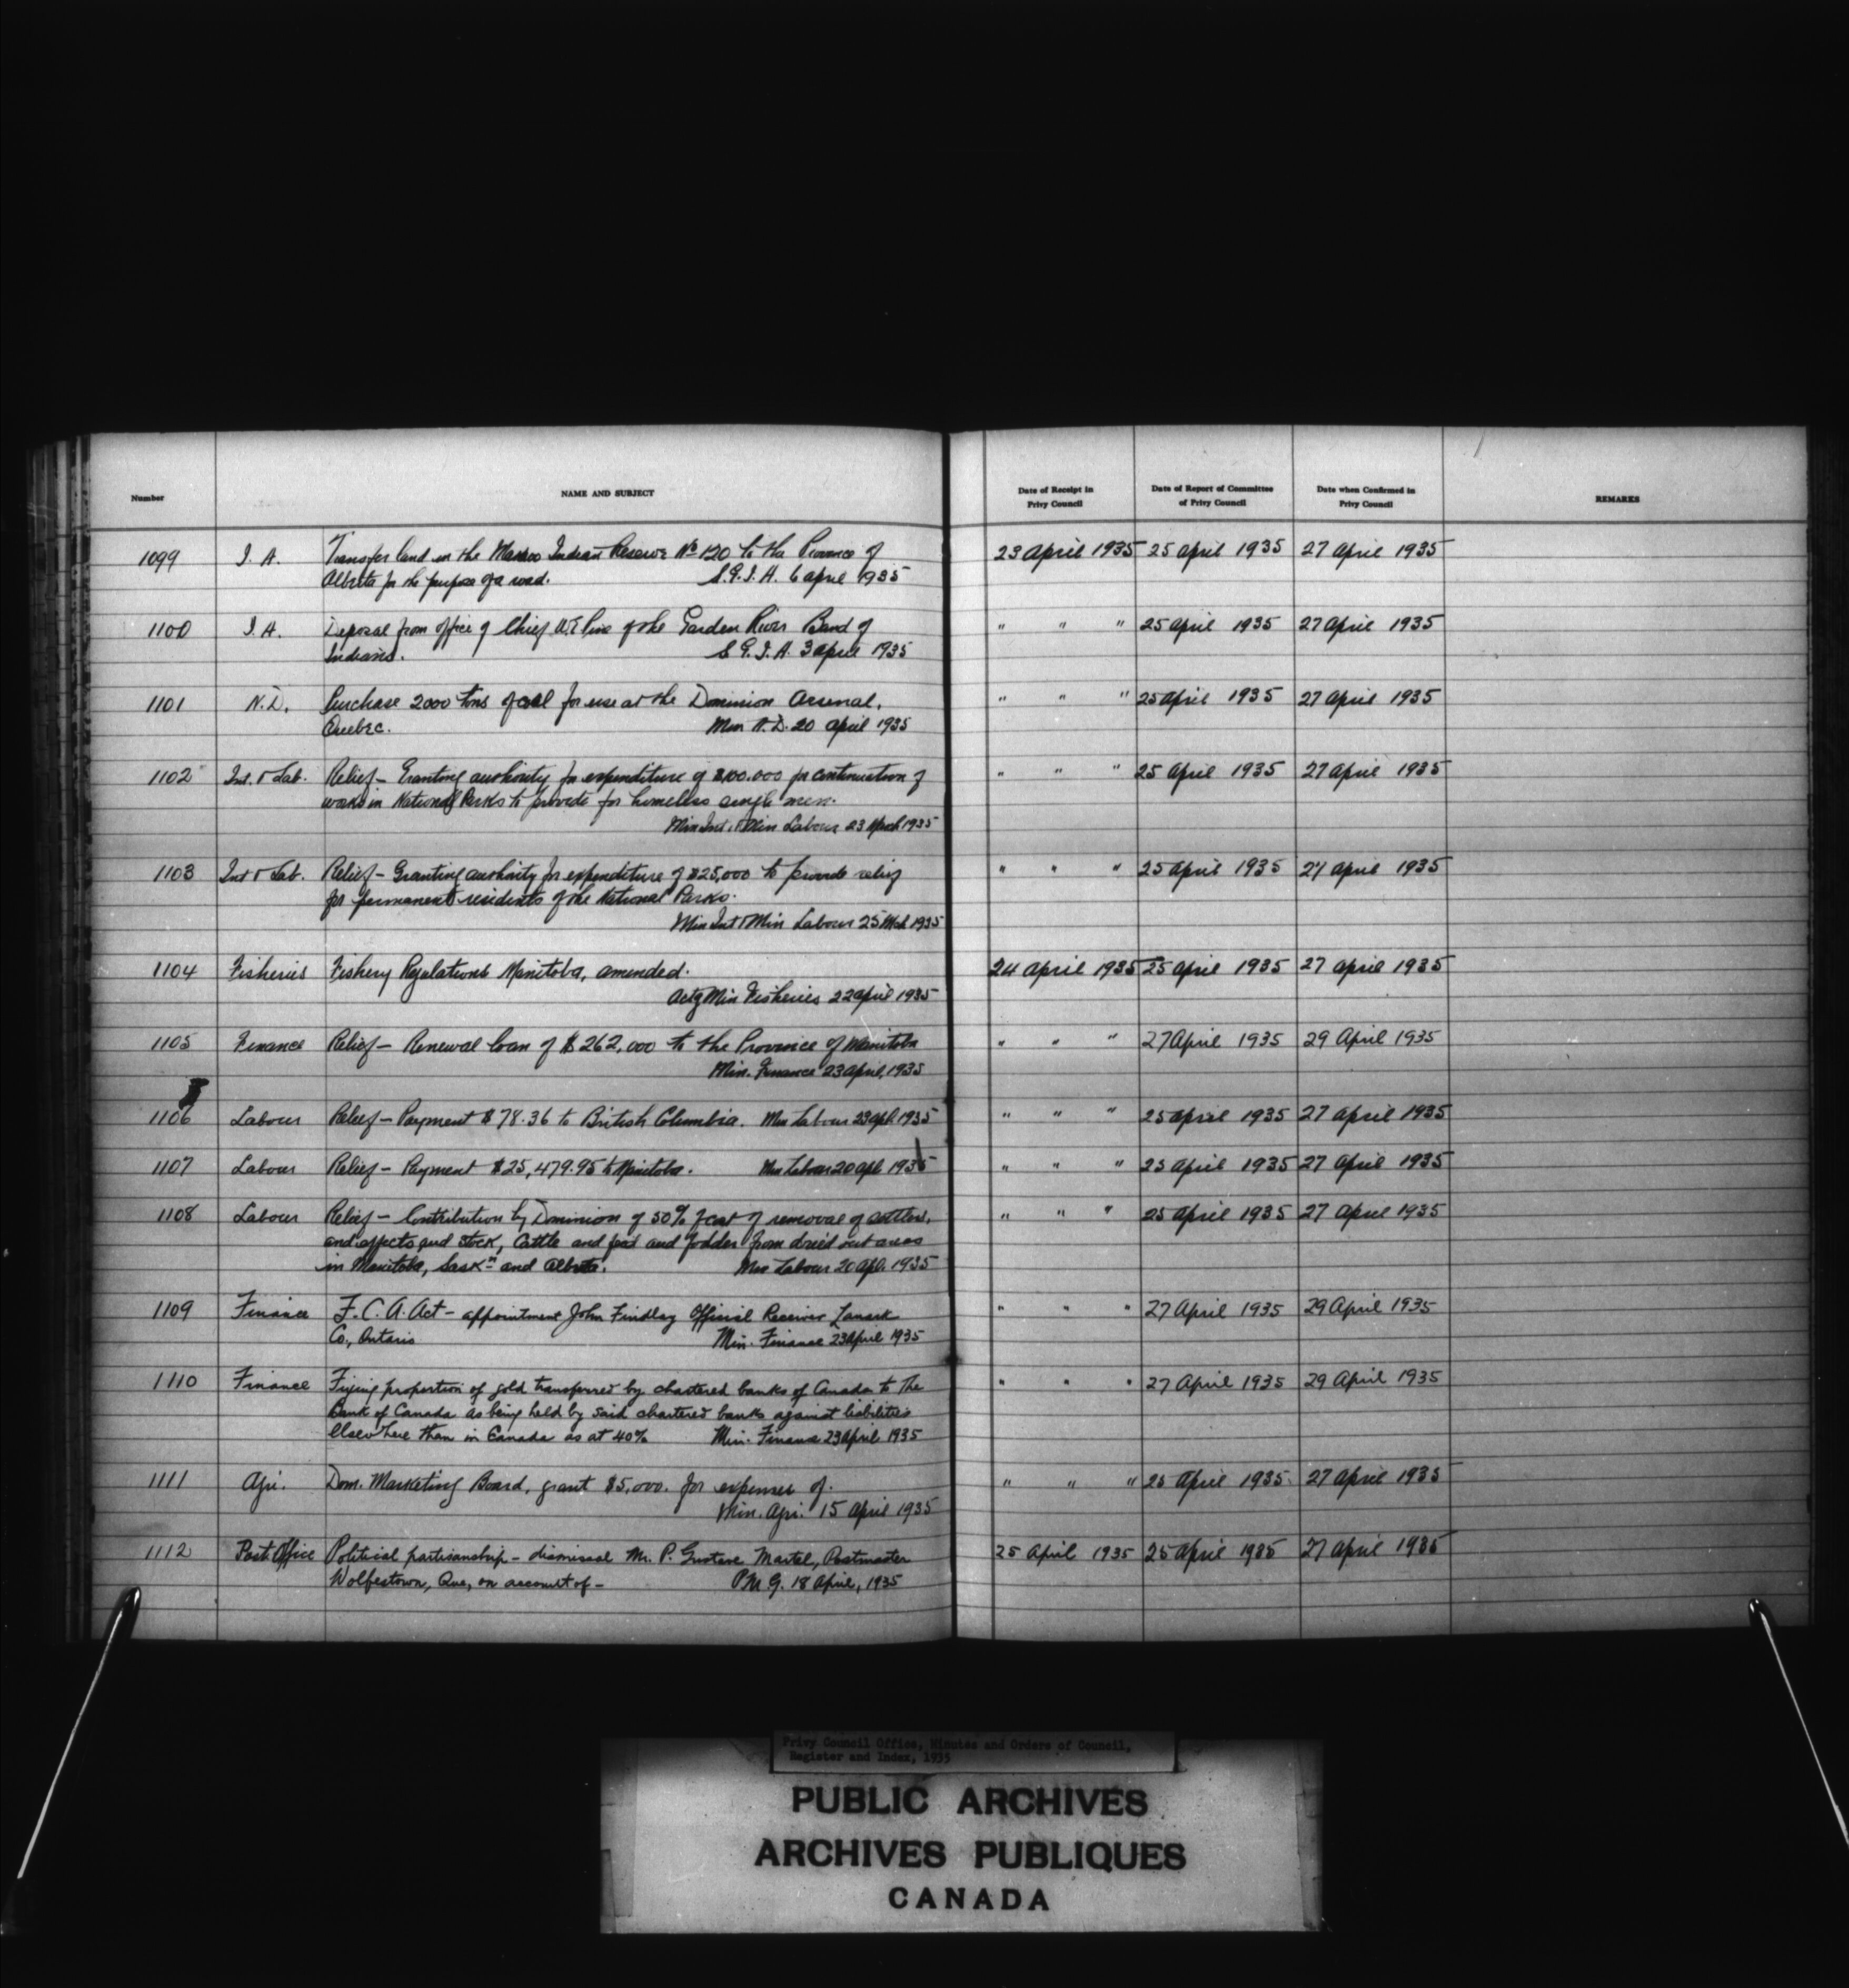 Number
NAME AND SUBJECT
Date of Receipt in
Privy Council
Date of Report of Committee
of Privy Council
Date when Confirmed in
Privy Council
REMARKS
1099 I. A. Transfer land in the Indian Reserve No 120 to the Province of 23 April 1935 25 April 1935 27 April 1935
Alberta for the purpose of a road. S.G.I.A. 6 April 1935
1100 I. A. Deposal from office of Chief of the Garden River Band of " " " 25 April 1935 27 April 1935
Indians. S.G.I.A. 3 April 1935
1101 N.D. Purchase 2000 tons of coal for use at the Dominion Arsenal, " " " 25 April 1935 27 April 1935
Quebec. Min N.D. 20 April 1935
1102 Int. & Lab. Relief - Granting authority for expenditure of $100.000 for continuation of " " " 25 April 1935 27 April 1935
works in National Parks to provide for homeless single men.
Min Int. & Min Labour 23 March 1935
1103 Int & Lab. Relief - Granting authority for expenditure of $25,000 to provide relief " " " 25 April 1935 27 April 1935
for permanent residents of the National Parks.
Min Int & Min Labour 25 Mch 1935
1104 Fisheries Fishery Regulations Manitoba, amended. 24 April 1935 25 April 1935 27 April 1935
Actg Min Fisheries 22 April 1935
1105 Finance Relief - Renewal loan of $262,000 to the Province of Manitoba " " " 27 April 1935 29 April 1935
Min. Finance 23 April, 1935
1106 Labour Relief - Payment $78.36 to British Columbia. Min Labour 23 Apl 1935 " " " 25 April 1935 27 April 1935
1107 Labour Relief - Payment $25,479.95 to Manitoba. Min Labour 20 Apl 1935 " " " 25 April 1935 27 April 1935
1108 Labour Relief - Contribution by Dominion of 50% of cost of removal of settlers, " " " 25 April 1935 27 April 1935
and effects and stock, Cattle and feed and fodder from dried out areas
in Manitoba, Saskn and Alberta. Min Labour 20 Apl. 1935
1109 Finance F.C.A. Act - appointment John Findlay Official Receiver Lanark " " " 27 April 1935 29 April 1935
Co., Ontario Min. Finance 23 April 1935
1110 Finance Fixing proportion of gold transferred by chartered banks of Canada to the " " " 27 April 1935 29 April 1935
Bank of Canada as being held by said chartered banks against liabilities
Elsewhere than in Canada as at 40% Min. Finance 23 April 1935
1111 Agri. Dom. Marketing Board, grant $5,000. for expenses of. " " " 25 April 1935 27 April 1935
Min. Agri. 15 April 1935
1112 Post Office Political partisanship - dismissal Mr. P. Gustave Martel, Postmaster 25 April 1935 25 April 1935 27 April 1935
Wolfestown, Que, on account of - P.M.G. 18 April, 1935
Privy Council Office, Minutes and Orders of Council,
Register and Index, 1935
PUBLIC ARCHIVES
ARCHIVES PUBLIQUES
CANADA